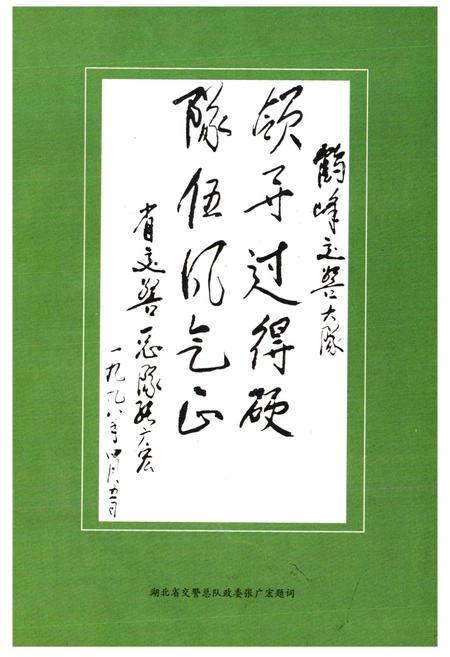 鹤峰交警大队
领导过得硬
隊伍风气正
省交警总隊张广宏
一九九八年四月五日
湖北省交警总队政委张广宏题词